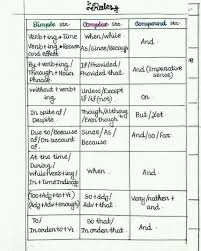 Rules
Simple stn. Complex stn. Compound stn.
Verb+ing+Time When/while And.
Verb+ing+Reason and effect As/Since/Because
By+verb+ing/ Through+Noun Phrase If/Provided/ Provided that. And (Imperative sense)
Without+verb+ ing. Unless/Except if/if (not) Or
In spite of/ Despite Though/Although Even though But/Yet
Due to/Because of/On account of. Since/As/ Because And/so/for
At the time/ During/ while/When+ing/ In+Time When... And
(Too+Adj+to+V1) (Adj+Adv+enough) So+adj/ Adv+that. Very/rather+ and
To/ In order to+V1 So that/ In order that. And.